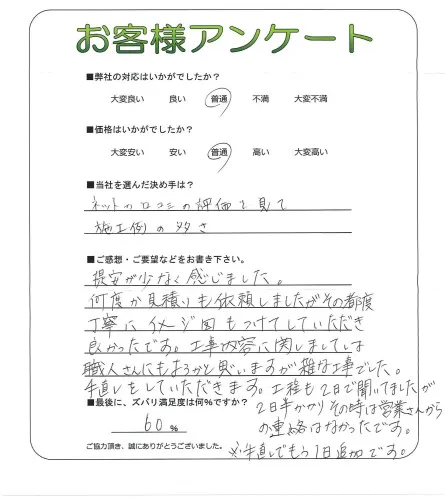 お客様アンケート
■弊社の対応はいかがでしたか？
大変良い 良い 普通 不満 大変不満
■価格はいかがでしたか？
大変安い 安い 普通 高い 大変高い
■当社を選んだ決め手は？
ネットの口コミの評価を見て
施工例の多さ
■ご感想・ご要望などをお書き下さい。
提案が少なく感じました。
何度か見積りも依頼しましたがその都度
丁寧にイメージ図もつけてしていただき
良かったです。工事内容に関しましては
職人さんにもよるかと思いますが雑な工事でした。
手直しをしていただきます。工程も2日で聞いてましたが
2日半かかりその時は営業さんから
の連絡はなかったです。
※手直しでもう1日追加です。
■最後に、ズバリ満足度は何%ですか？
60 %
ご協力頂き、誠にありがとうございました。